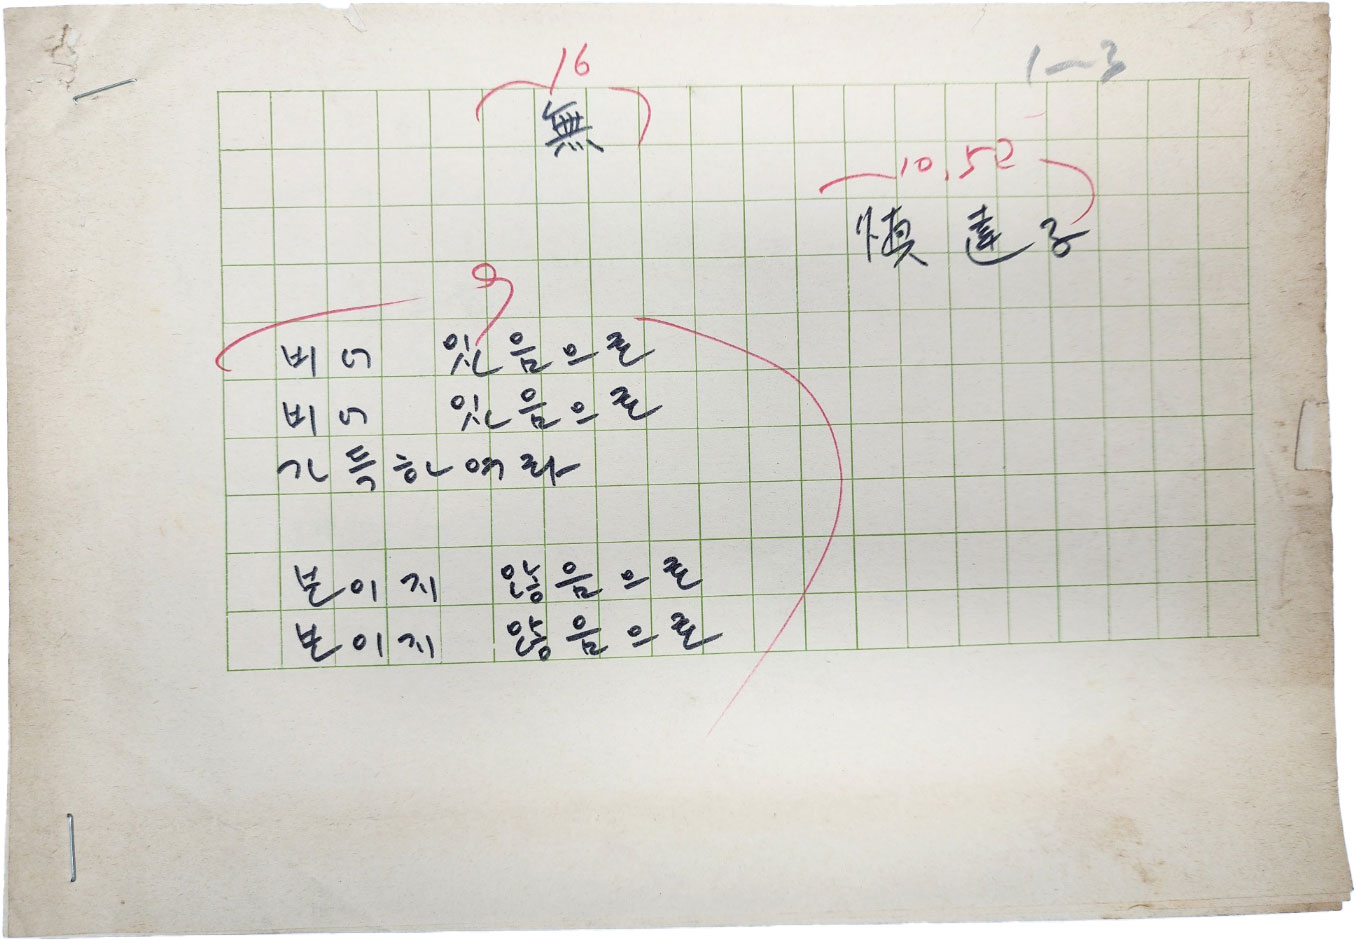 1-3
16
無
10.5
慎達子
9
비어 있음으로
비어 있음으로
가득하여라
보이지 않음으로
보이지 않음으로